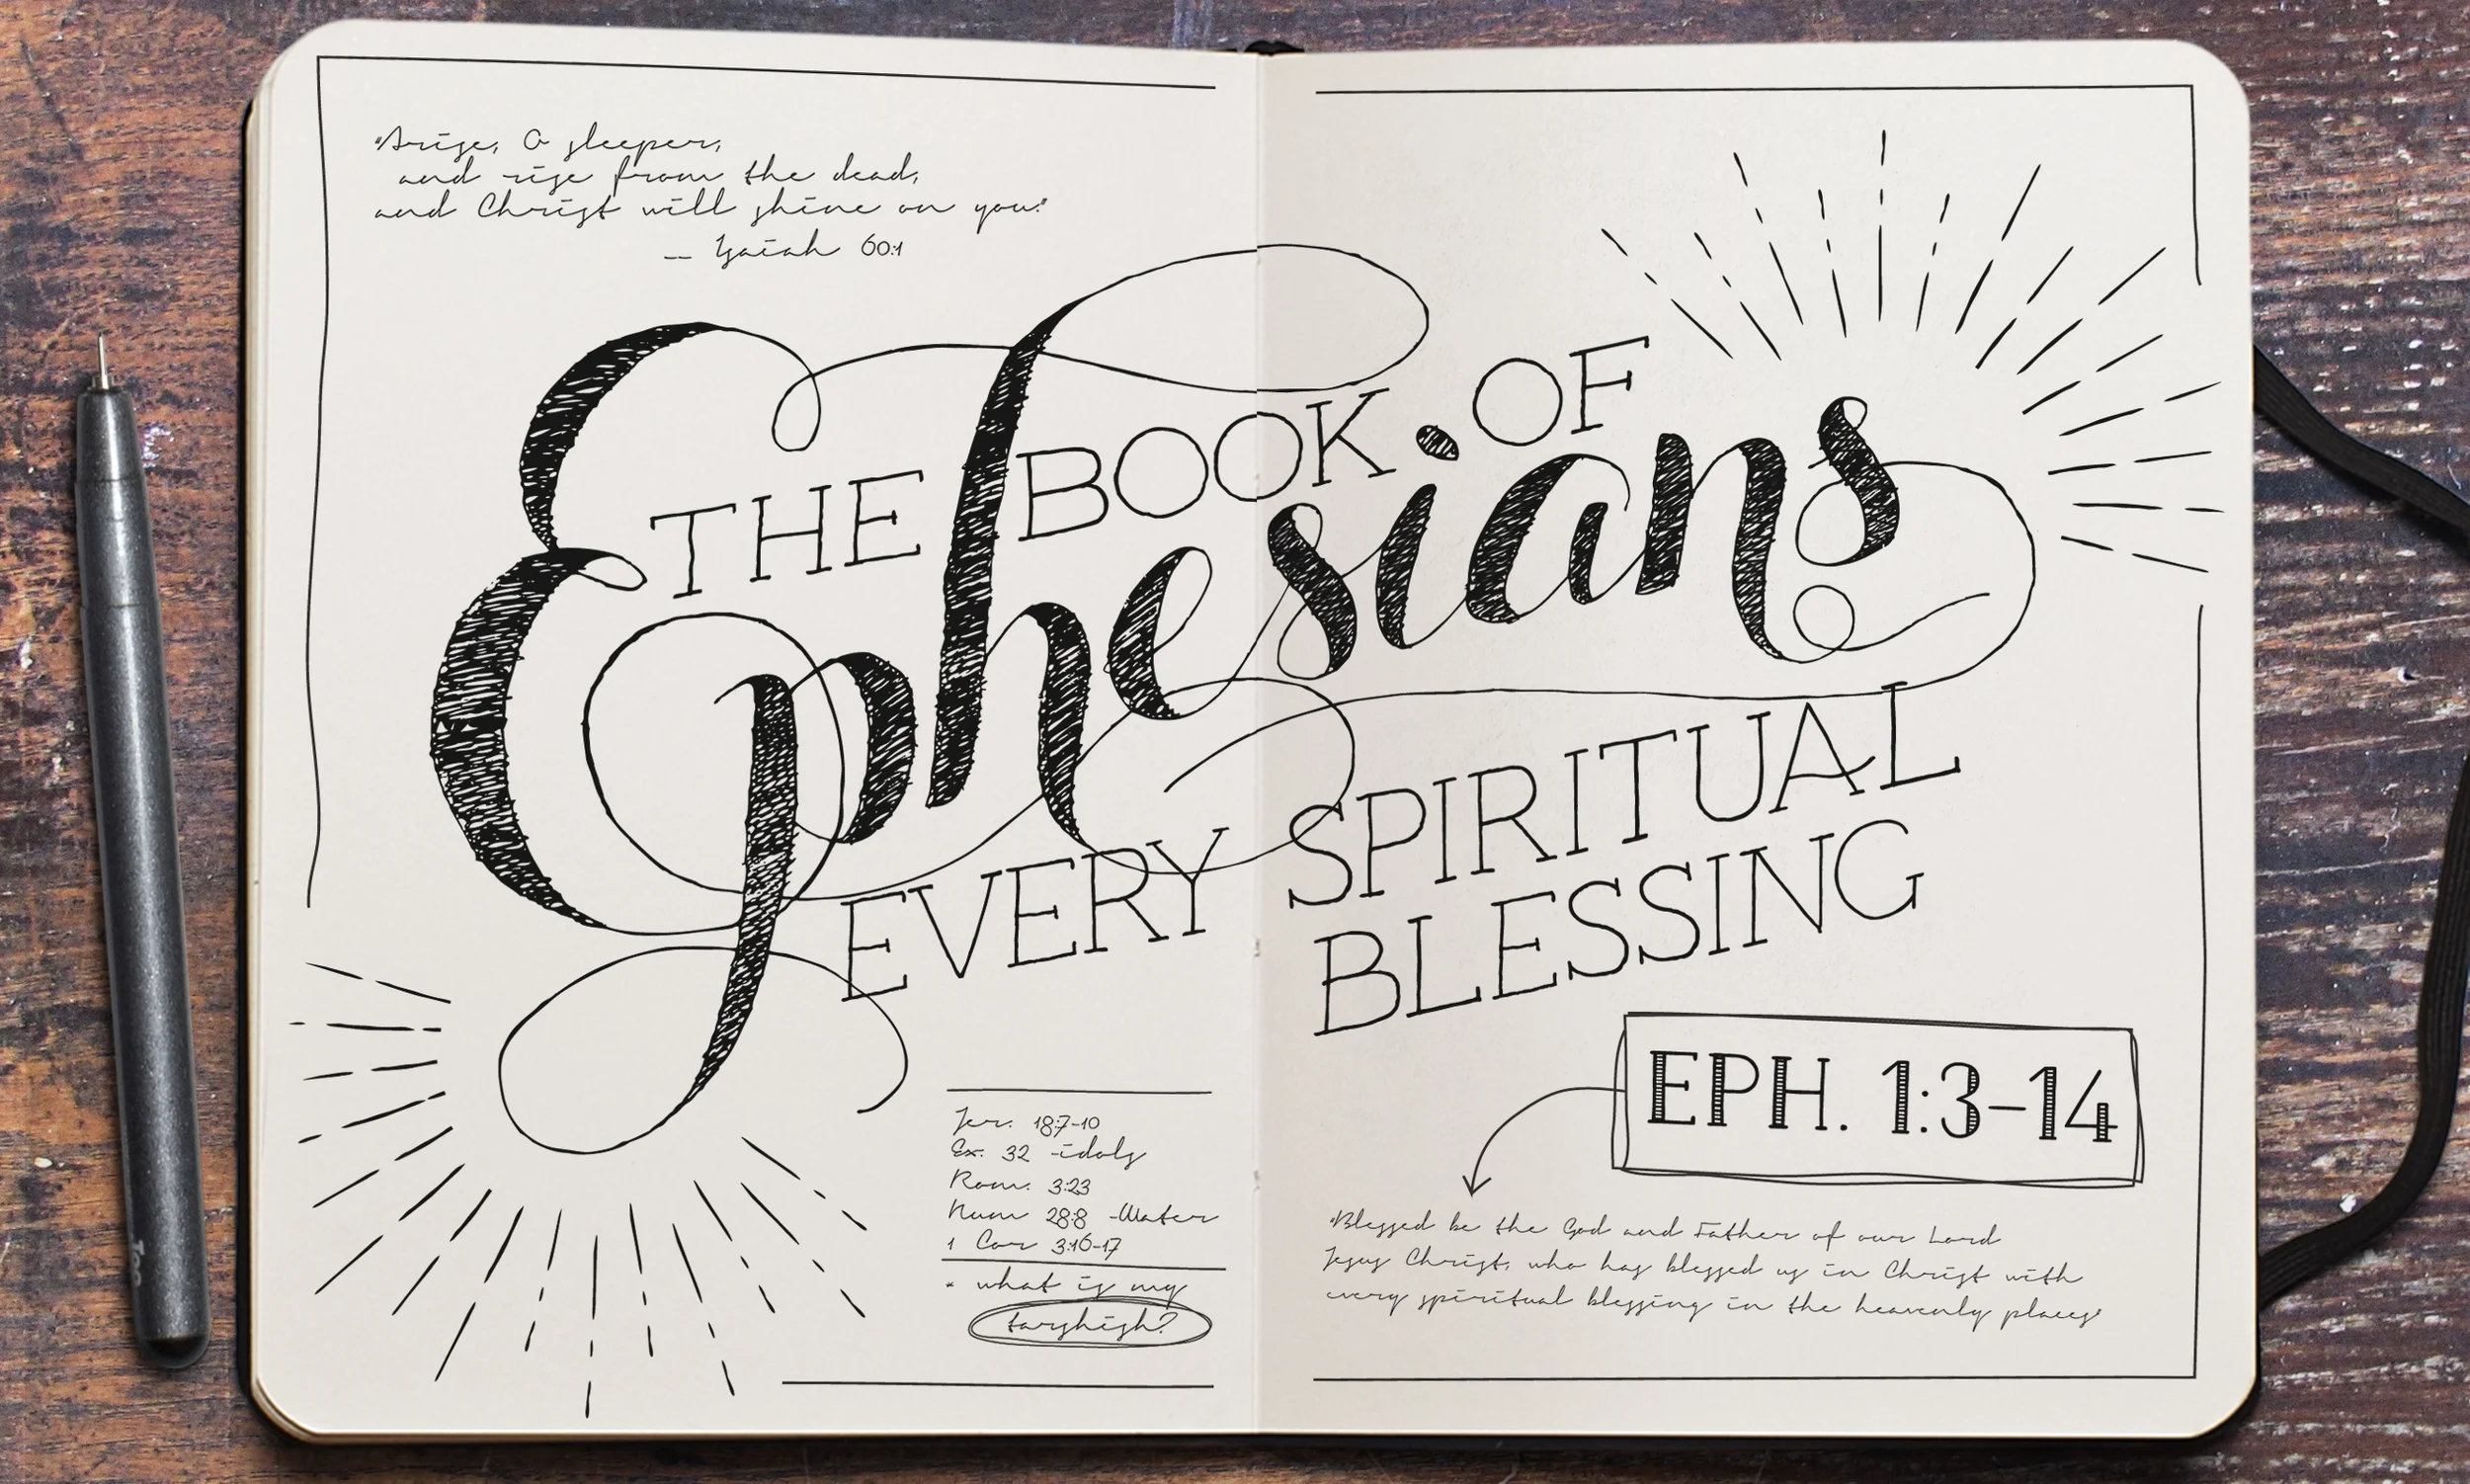 "Arise, O sleeper,
and rise from the dead,
and Christ will shine on you."
-- Isaiah 60:1
THE BOOK OF
Ephesians
EVERY SPIRITUAL
BLESSING
EPH. 1:3-14
Jer. 18:7-10
Ex. 32 -idols
Rom. 3:23
Num 28:8 -Water
1 Cor 3:16-17
- what is my
tarshish?
"Blessed be the God and Father of our Lord
Jesus Christ, who has blessed us in Christ with
every spiritual blessing in the heavenly places"